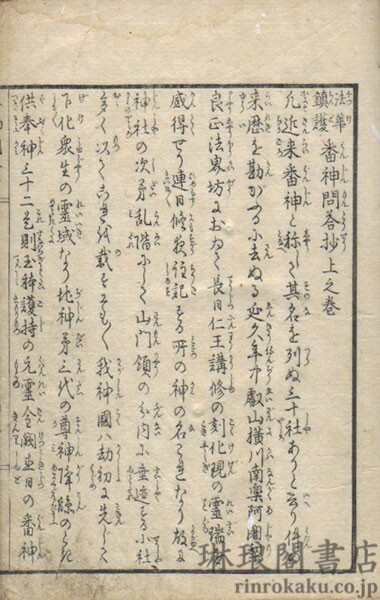 法華鎮護 番神問答抄上之巻
凡近来番神と称して其名を列ぬ三十社ありと云り件
来歴を勘かふるに去ぬる延久八年中叡山横川南楽阿闍
良正法界坊において長日仁王講修の刻化現の霊瑞
感得せり連日修敬注記する所の神の名これなり故に
神社の次第乱階にして山門領の分内に垂迹する小社
多く以てこれを載をそもそも我神国ハ劫初に先して
下化衆生の霊域なり地神第三代の尊神降臨のとき
供奉神三十二是則玉体護持の元霊今
番神
琳琅閣書店
rinrokaku.co.jp